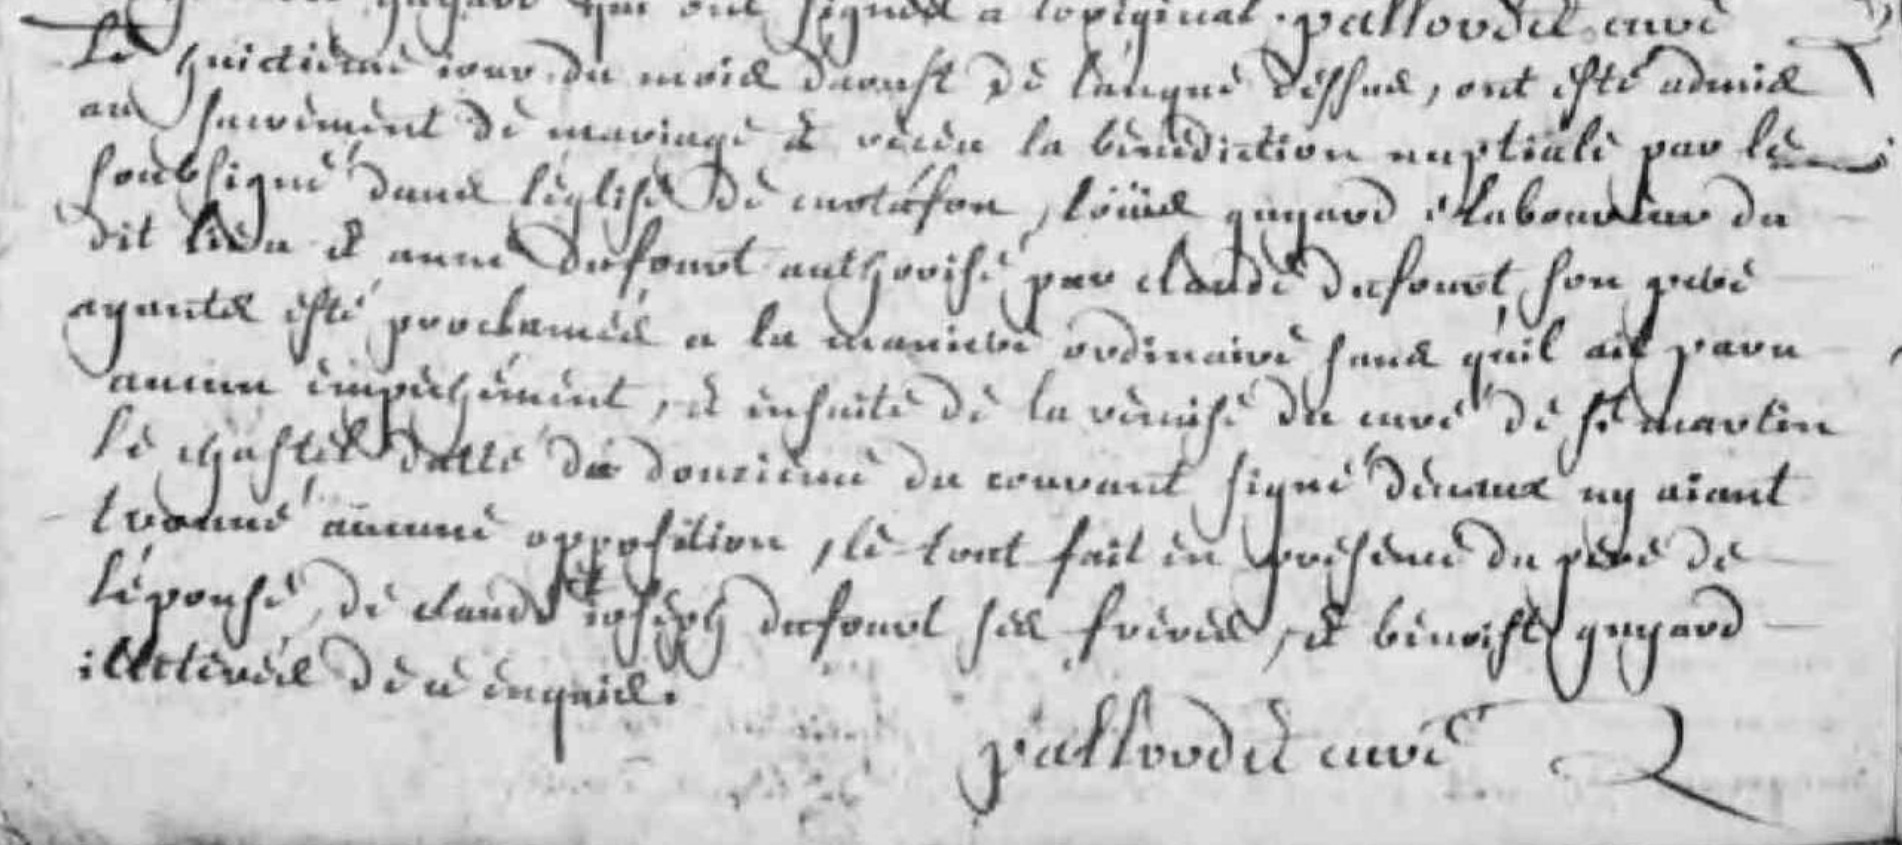 guyard qui ont signés a loriginal. pallordet curé
Le huictieme iour du mois daoust de lannee dessus, ont esté admis
au sacrement de mariage & receu la benediction nuptiale par le
soubsigné dans léglise de loüis guyard laboureur du
dit lieu & anne dufourt authorisé par claude dufourt son pere
ayants esté proclamés a la maniere ordinaire sans quil ait paru
aucun empechement, & ensuite de la remise du curé de st martin
le chastel datté du douzieme du courant signé ny aiant
trouué aucune opposition, le tout fait en presence du pere de
lépouse, de claude & ioseph dufourt ses freres, & benoist guyard
illetterés de ce enquis.
pallordet curé